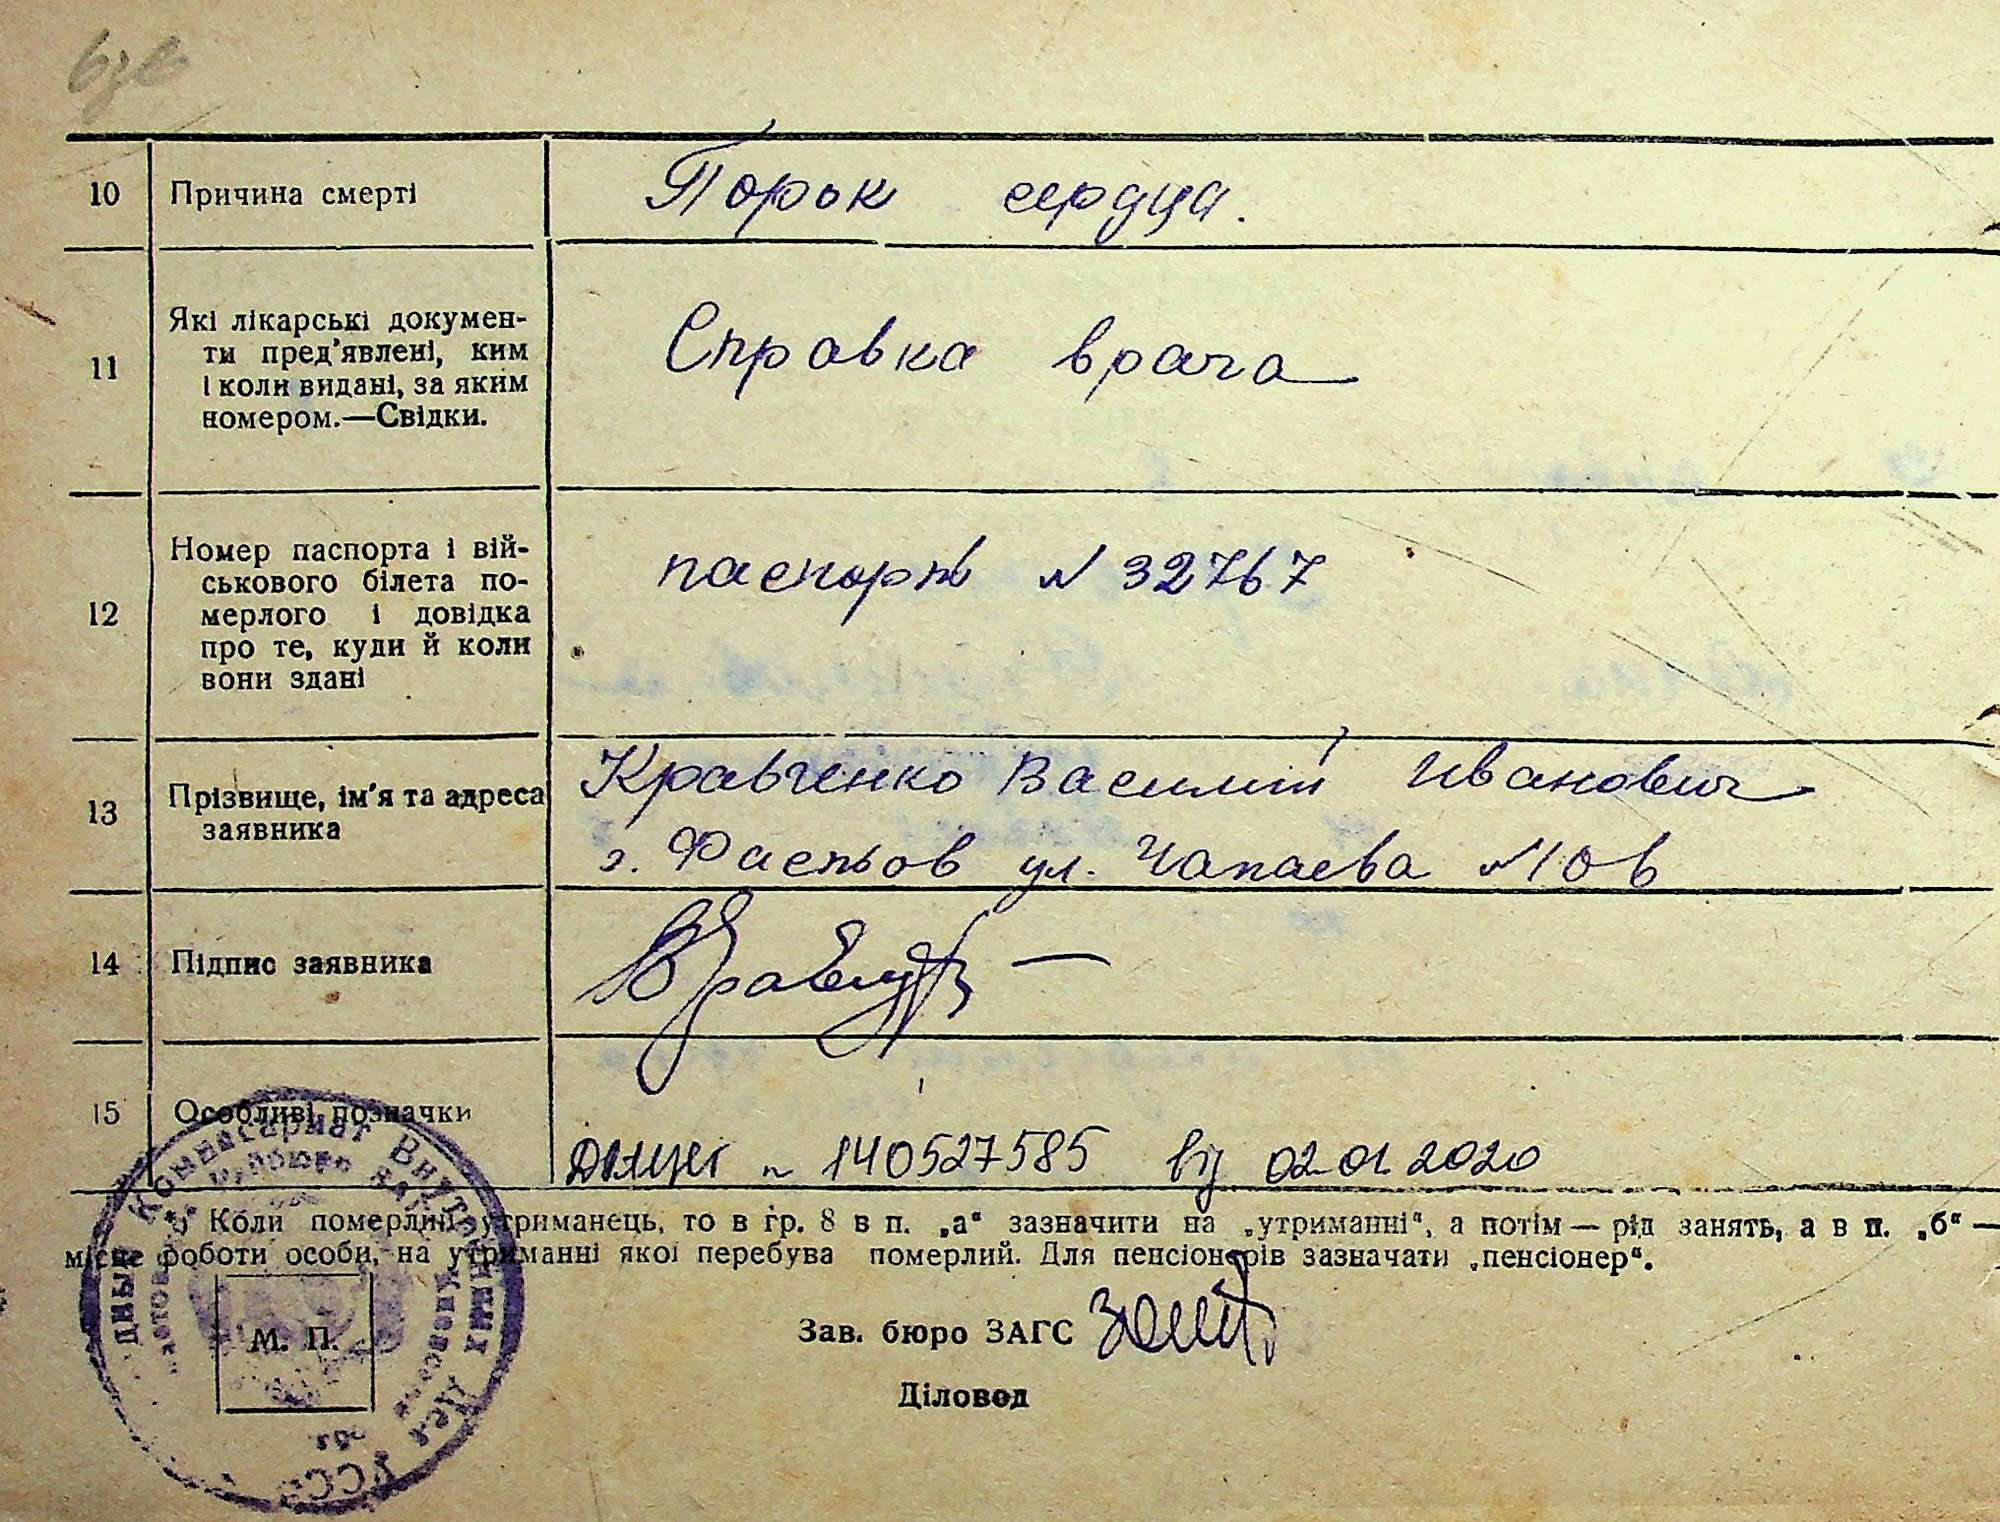 10 Причина смерті Порок сердца.
11 Які лікарські докумен-
ти пред'явлені, ким
і коли видані, за яким
номером.—Свідки.
Справка врача
12 Номер паспорта і вій-
ськового білета по-
мерлого і довідка
про те, куди й коли
вони здані
паспорт N 32767
13 Прізвище, ім'я та адреса
заявника
Кравченко Василий Иванович
г. Фастов ул. Чапаева N 10 в
14 Підпис заявника
15 Особливі позначки
N 140527585 від 02.01.2020
*) Коли померлий утриманець, то в гр. 8 в п. „а“ зазначити на „утриманні“, а потім — рід занять, а в п. „б“ —
місце роботи особи, на утриманні якої перебува померлий. Для пенсіонерів зазначати „пенсіонер“.
М. П.
Зав. бюро ЗАГС
Діловод
Комиссариат Внутренних Дел УССР